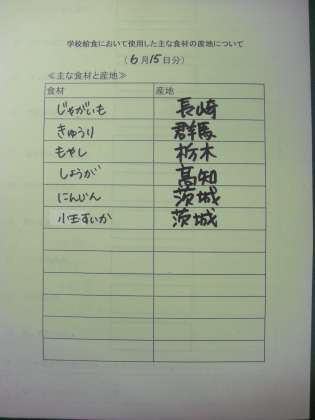 学校給食において使用した主な食材の産地について
(6月15日分)
≪主な食材と産地≫
食材 産地
じゃがいも 長崎
きゅうり 群馬
もやし 栃木
しょうが 高知
にんじん 茨城
小玉すいか 茨城